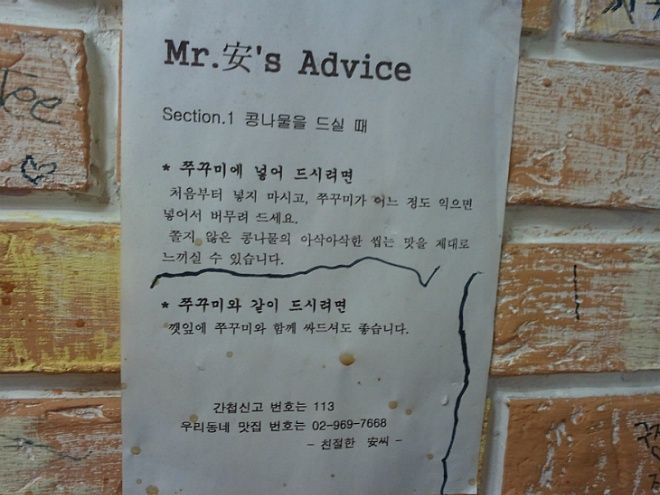 Mr.安's Advice
Section.1 콩나물을 드실 때
* 쭈꾸미에 넣어 드시려면
처음부터 넣지 마시고, 쭈꾸미가 어느 정도 익으면
넣어서 버무려 드세요.
쫄지 않은 콩나물의 아삭아삭한 씹는 맛을 제대로
느끼실 수 있습니다.
* 쭈꾸미와 같이 드시려면
깻잎에 쭈꾸미와 함께 싸드셔도 좋습니다.
간첩신고 번호는 113
우리동네 맛집 번호는 02-969-7668
- 친절한 安씨 -